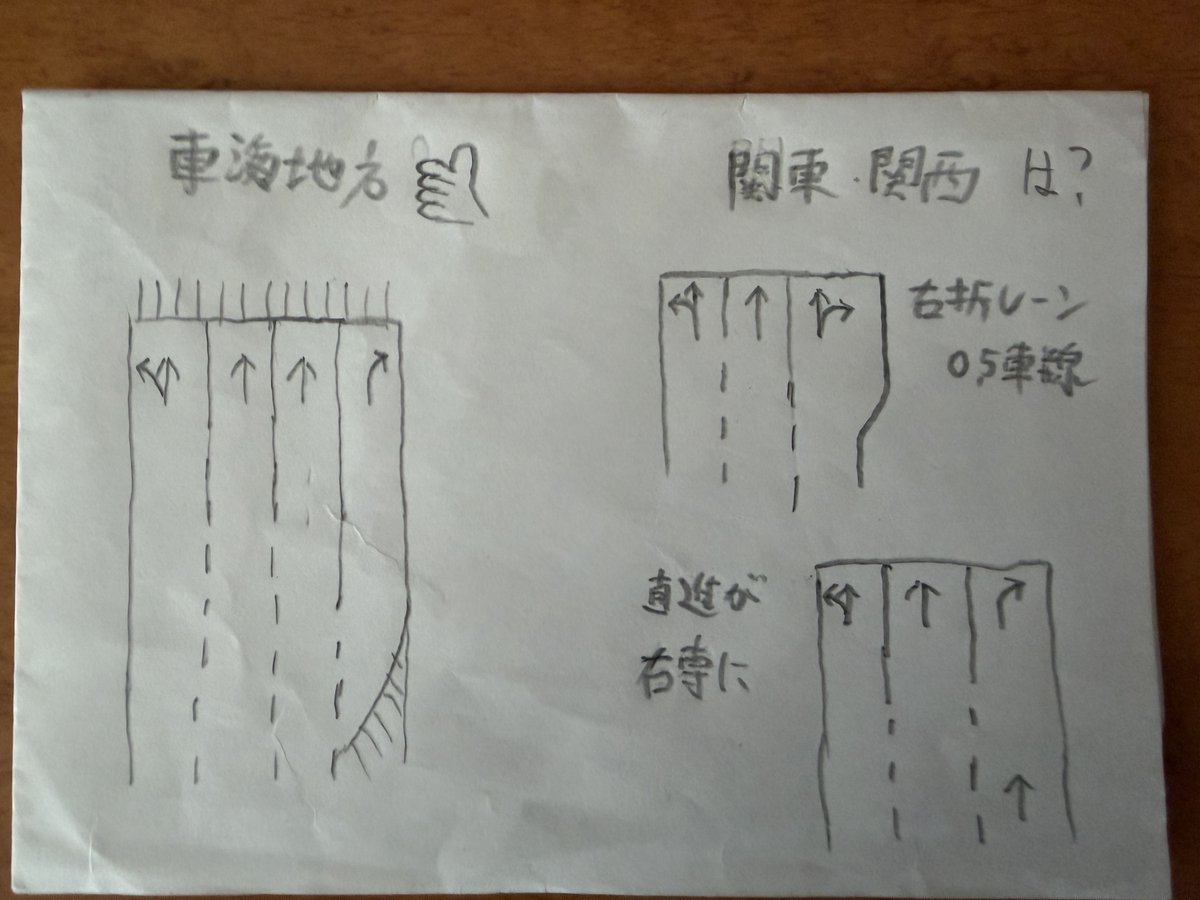 東海地方
関東・関西 は?
右折レーン
0.5車線
直進が
右専に